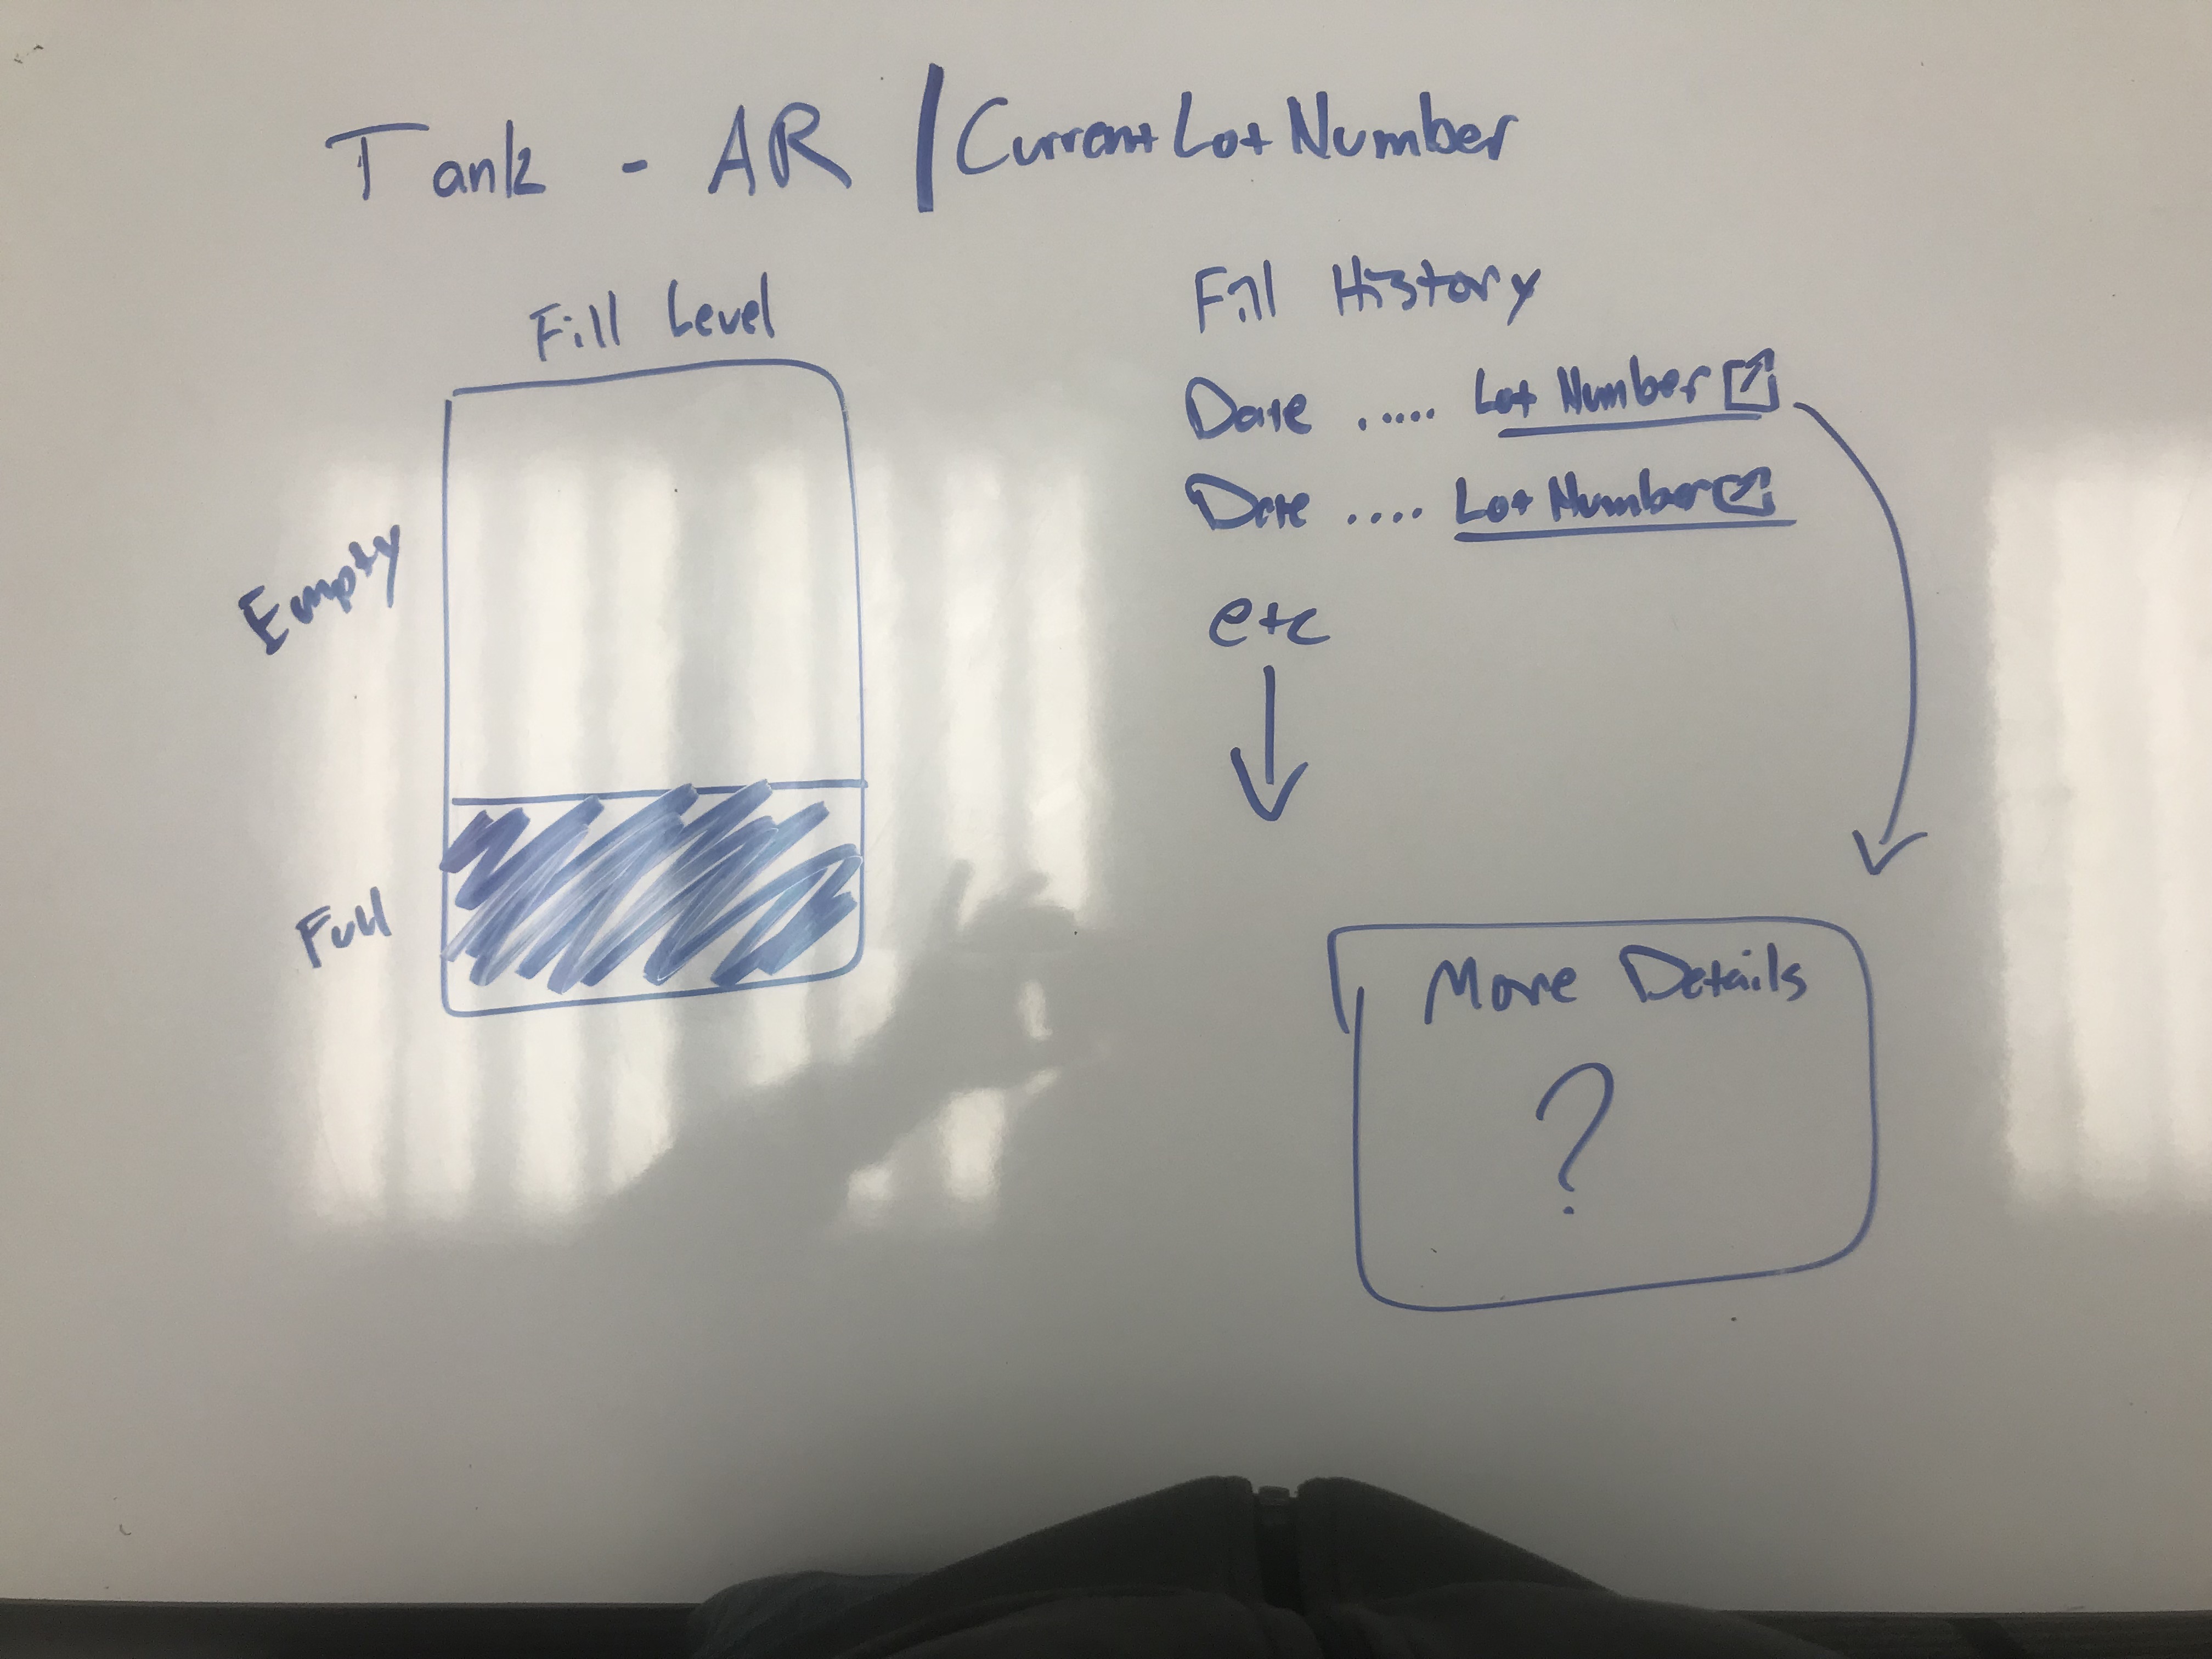 Tank - AR | Current Lot Number
Fill Level
Empty
Full
Fill History
Date ..... Lot Number
Date .... Lot Number
etc
More Details
?